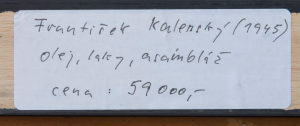 František Kalenský (1945)
olej, laky, asambláž
cena : 59 000,-